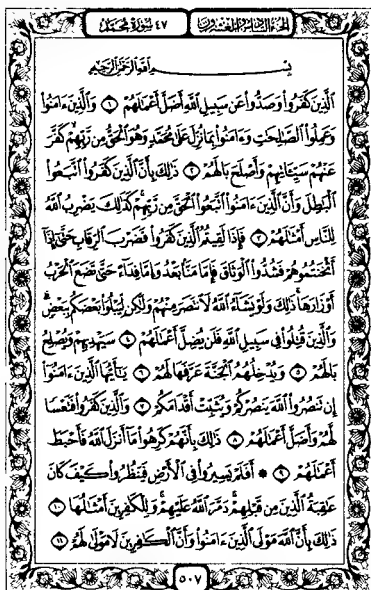 الجزء السادس والعشرون
٤٧ سورة محمد
بِسْمِ ٱللَّهِ ٱلرَّحْمَٰنِ ٱلرَّحِيمِ
ٱلَّذِينَ كَفَرُوا۟ وَصَدُّوا۟ عَن سَبِيلِ ٱللَّهِ أَضَلَّ أَعْمَٰلَهُمْ ١ وَٱلَّذِينَ ءَامَنُوا۟
وَعَمِلُوا۟ ٱلصَّٰلِحَٰتِ وَءَامَنُوا۟ بِمَا نُزِّلَ عَلَىٰ مُحَمَّدٍ وَهُوَ ٱلْحَقُّ مِن رَّبِّهِمْ كَفَّرَ
عَنْهُمْ سَيِّـَٔاتِهِمْ وَأَصْلَحَ بَالَهُمْ ٢ ذَٰلِكَ بِأَنَّ ٱلَّذِينَ كَفَرُوا۟ ٱتَّبَعُوا۟
ٱلْبَٰطِلَ وَأَنَّ ٱلَّذِينَ ءَامَنُوا۟ ٱتَّبَعُوا۟ ٱلْحَقَّ مِن رَّبِّهِمْ كَذَٰلِكَ يَضْرِبُ ٱللَّهُ
لِلنَّاسِ أَمْثَٰلَهُمْ ٣ فَإِذَا لَقِيتُمُ ٱلَّذِينَ كَفَرُوا۟ فَضَرْبَ ٱلرِّقَابِ حَتَّىٰٓ إِذَآ
أَثْخَنتُمُوهُمْ فَشُدُّوا۟ ٱلْوَثَاقَ فَإِمَّا مَنًّۢا بَعْدُ وَإِمَّا فِدَآءً حَتَّىٰ تَضَعَ ٱلْحَرْبُ
أَوْزَارَهَا ذَٰلِكَ وَلَوْ يَشَآءُ ٱللَّهُ لَٱنتَصَرَ مِنْهُمْ وَلَٰكِن لِّيَبْلُوَا۟ بَعْضَكُم بِبَعْضٍ
وَٱلَّذِينَ قُتِلُوا۟ فِى سَبِيلِ ٱللَّهِ فَلَن يُضِلَّ أَعْمَٰلَهُمْ ٤ سَيَهْدِيهِمْ وَيُصْلِحُ
بَالَهُمْ ٥ وَيُدْخِلُهُمُ ٱلْجَنَّةَ عَرَّفَهَا لَهُمْ ٦ يَٰٓأَيُّهَا ٱلَّذِينَ ءَامَنُوٓا۟
إِن تَنصُرُوا۟ ٱللَّهَ يَنصُرْكُمْ وَيُثَبِّتْ أَقْدَامَكُمْ ٧ وَٱلَّذِينَ كَفَرُوا۟ فَتَعْسًا
لَّهُمْ وَأَضَلَّ أَعْمَٰلَهُمْ ٨ ذَٰلِكَ بِأَنَّهُمْ كَرِهُوا۟ مَآ أَنزَلَ ٱللَّهُ فَأَحْبَطَ
أَعْمَٰلَهُمْ ٩ ۞ أَفَلَمْ يَسِيرُوا۟ فِى ٱلْأَرْضِ فَيَنظُرُوا۟ كَيْفَ كَانَ
عَٰقِبَةُ ٱلَّذِينَ مِن قَبْلِهِمْ دَمَّرَ ٱللَّهُ عَلَيْهِمْ وَلِلْكَٰفِرِينَ أَمْثَٰلُهَا ١٠
ذَٰلِكَ بِأَنَّ ٱللَّهَ مَوْلَى ٱلَّذِينَ ءَامَنُوا۟ وَأَنَّ ٱلْكَٰفِرِينَ لَا مَوْلَىٰ لَهُمْ ١١
٥٠٧